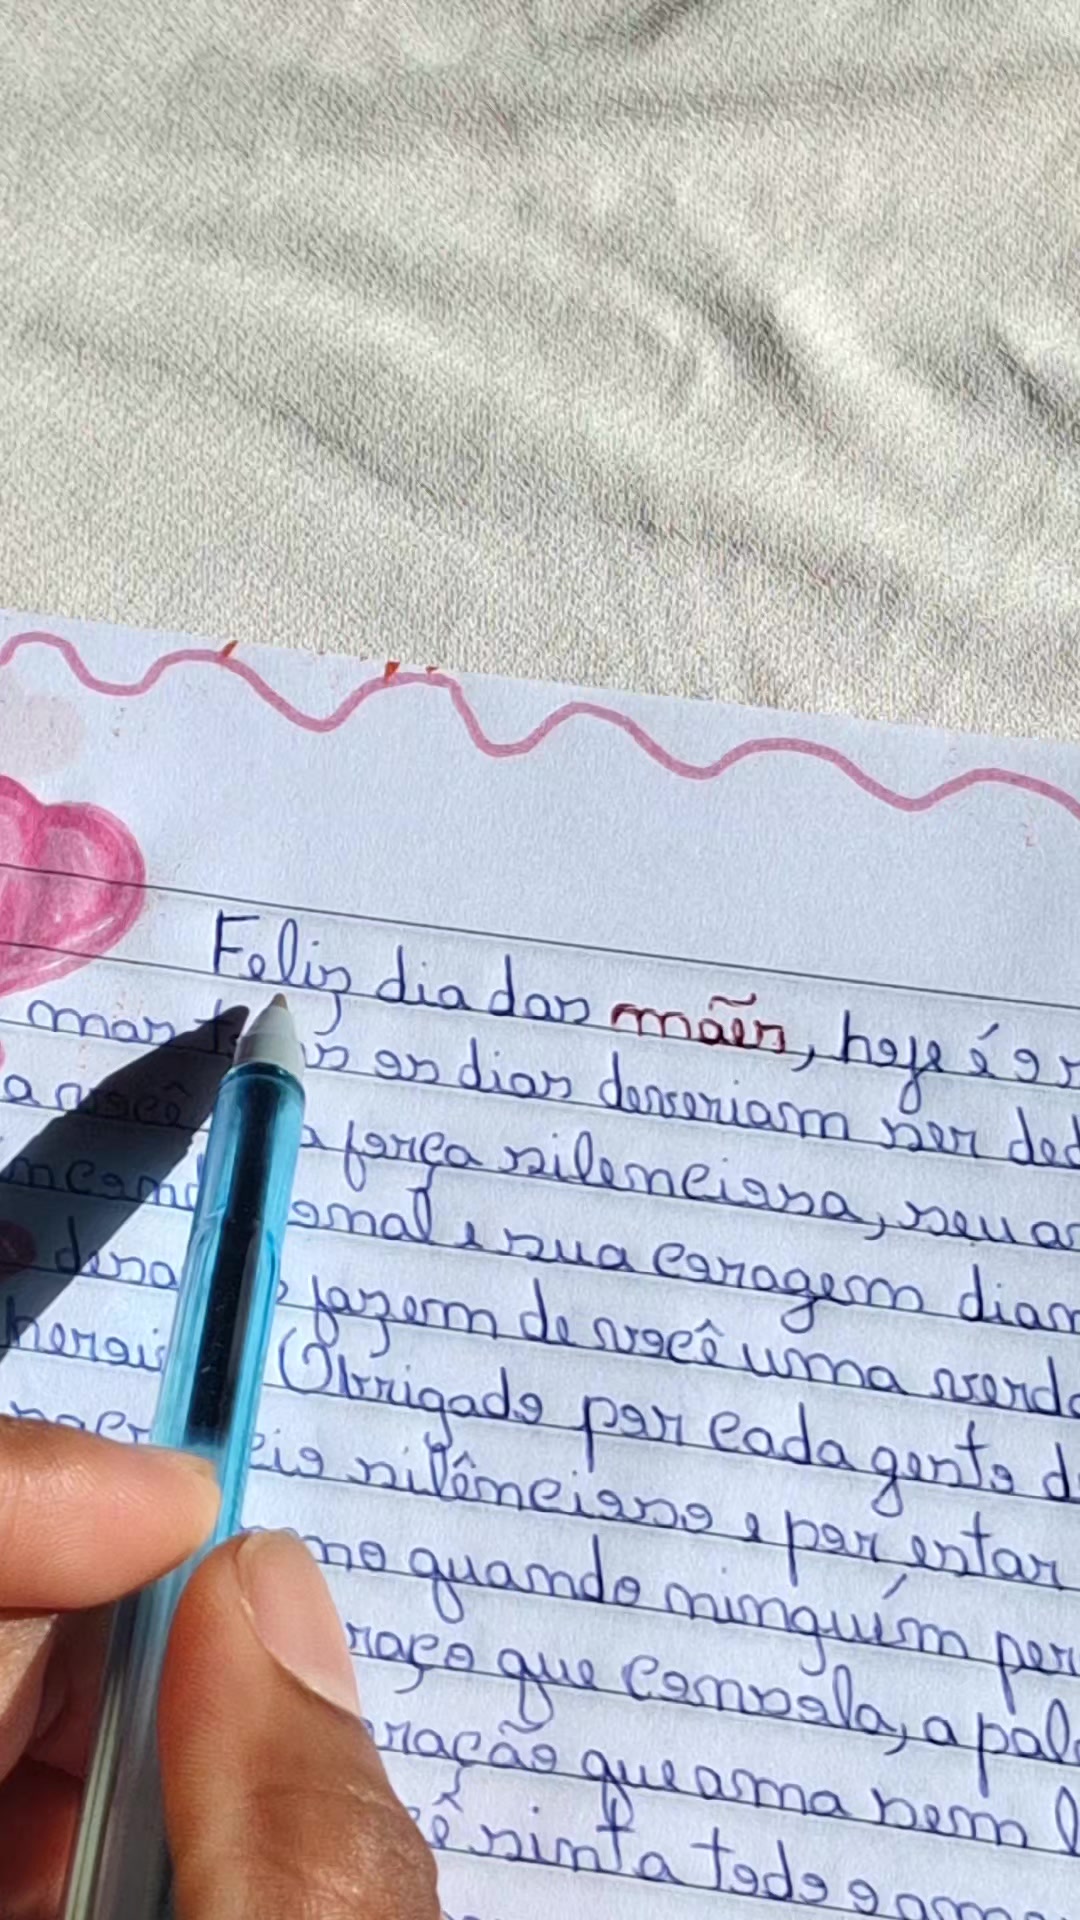 Feliz dia das mães, hoje é o
mas os dias deveriam ser ded
a você a força silenciosa, seu a
incond ional e sua coragem dian
desa fazem de você uma verda
herois Obrigado por cada gesto d
cio silêncioso e por estar
mo quando ninguém per
raço que consola, a pal
ração que ama sem l
ê sinta todo o amo